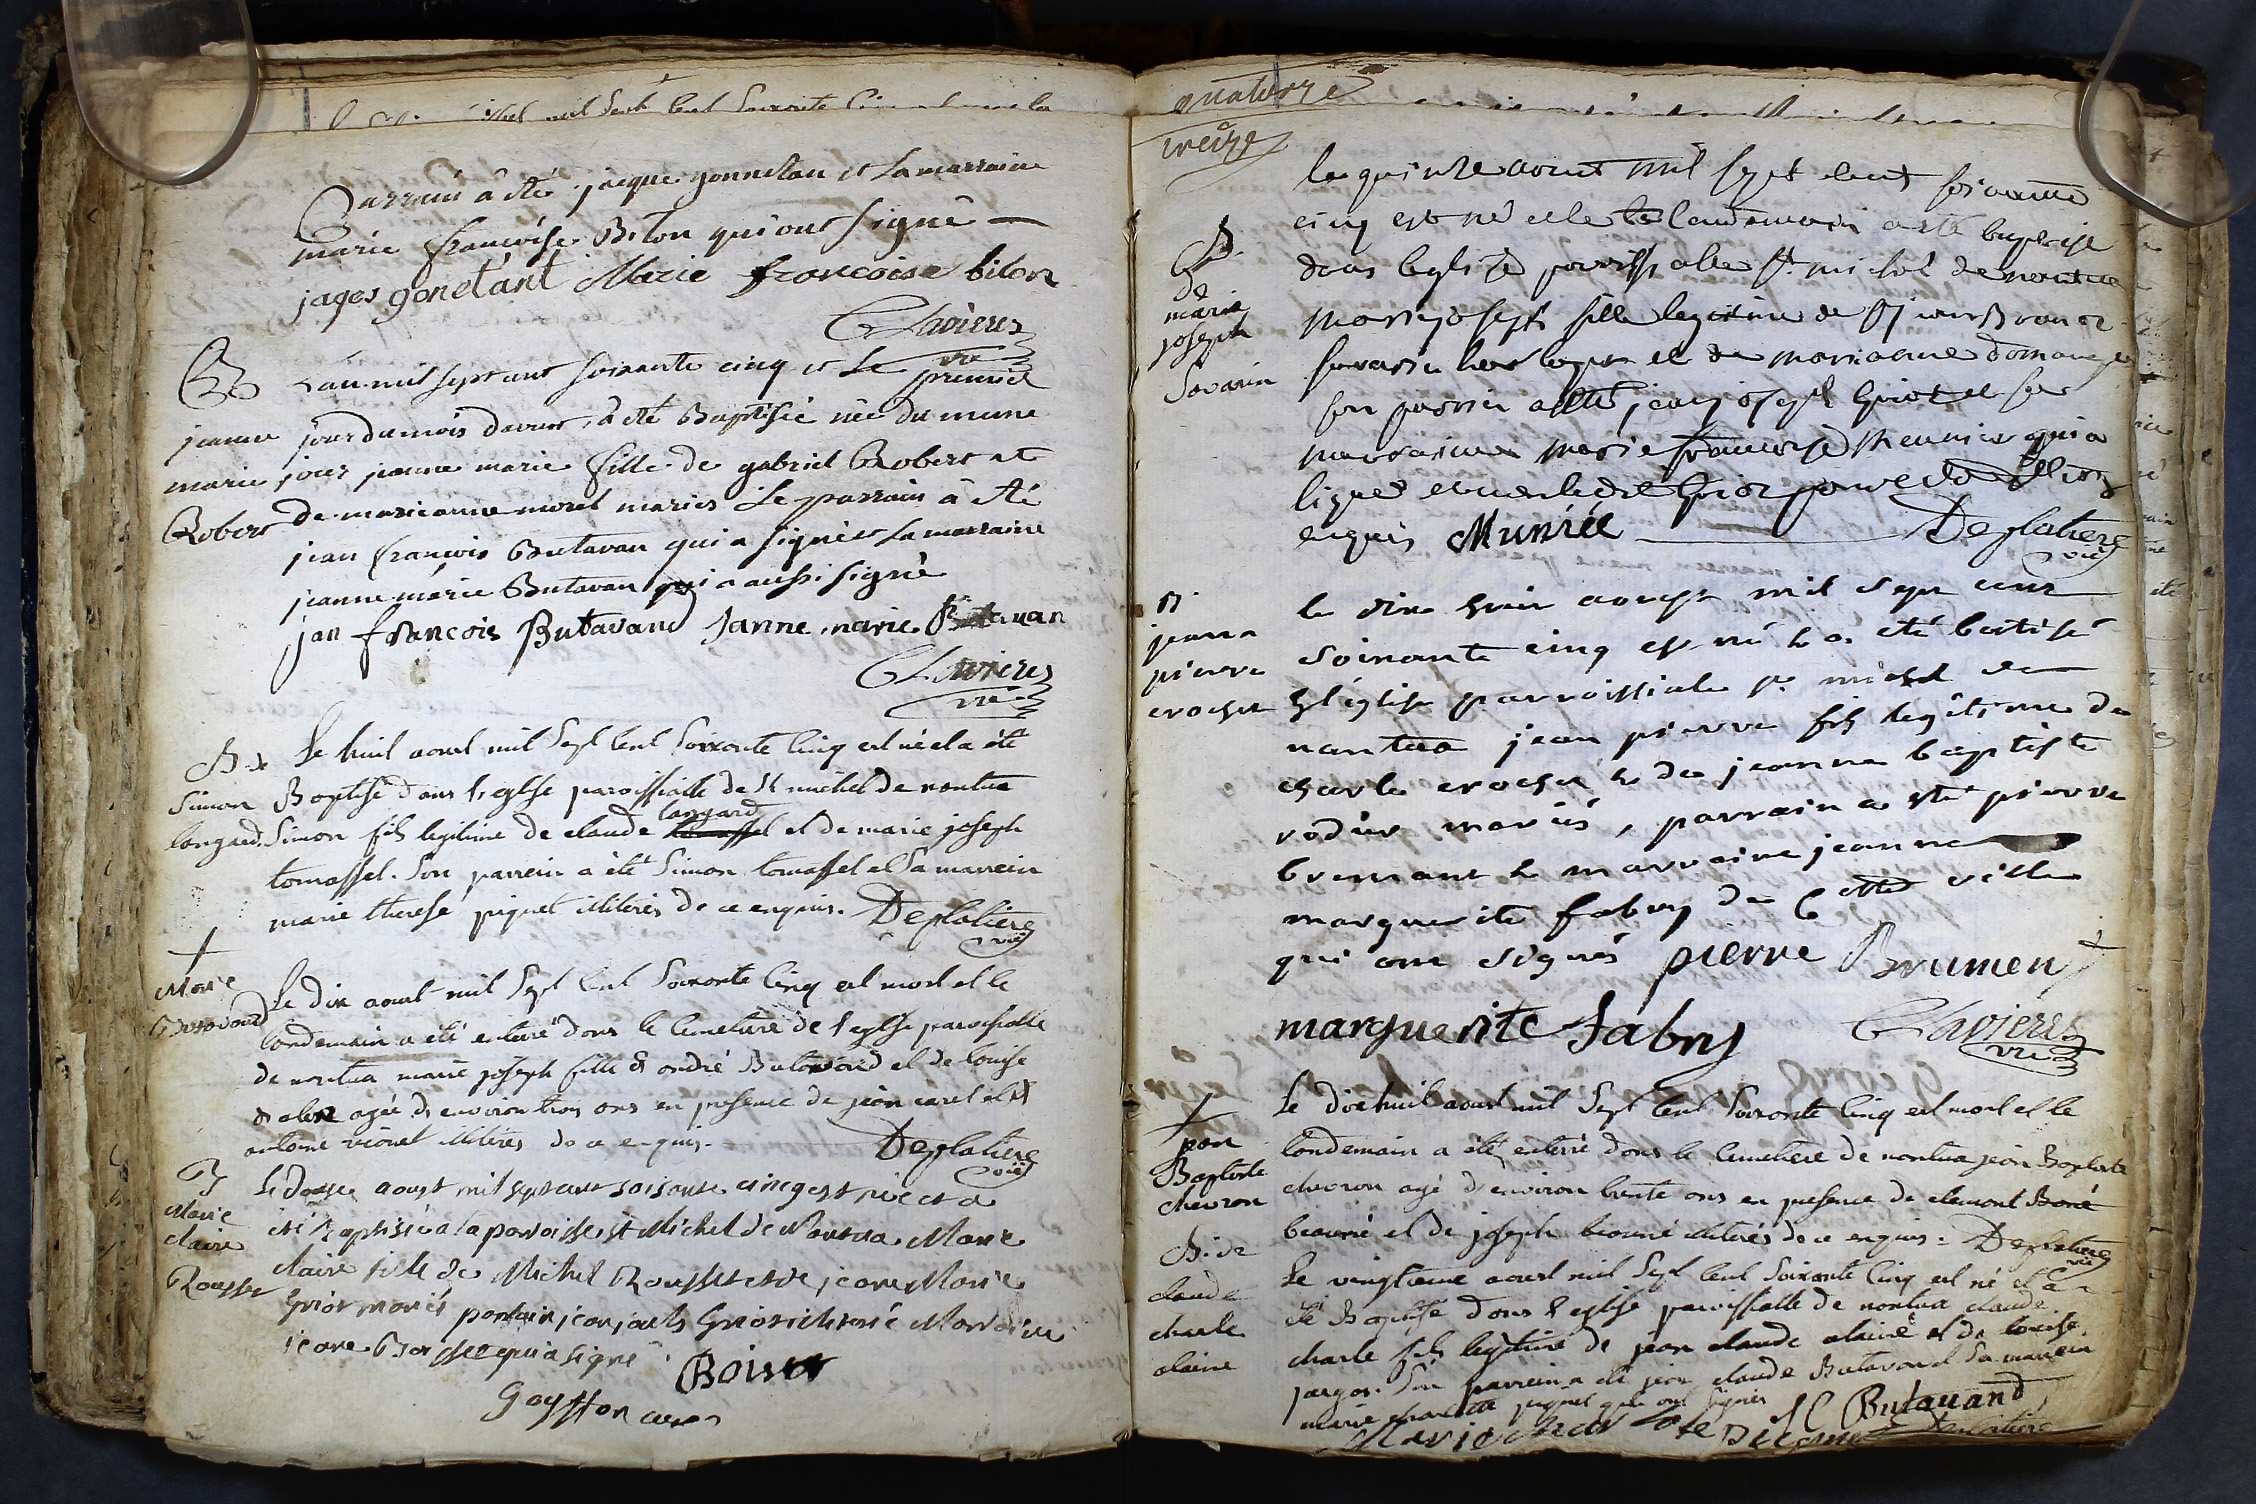 parrain â eté jacque gonnetan et La marraine
marie francoise Biton qui ont signé
jaqes gonetant Marie francoise biton
Clavieres
vre
B
jeanne
marie
Robert
L'an mil sept cent soixante cinq et Le premier
jour du mois d'aoust, à eté Baptisée née du meme
jour jeanne marie fille de gabriel Robert et
de marieanne morel mariés Le parrain â eté
jean francois Butavan qui a signé et La marraine
jeanne marie Butavan qui a aussi signé
jan francois Butavand Janne marie Butavan
Clavieres
vre
B. de
Simon
longard
Le huit aoust mil Sept Cent Soixante Cinq est né et a été
Baptisé dans l'eglise paroissialle de St michel de nantua
Simon fils legitime de claude longard et de marie joseph
tomassel. Son parrein a été Simon tomassel et Sa marrein
marie therese piquet illiterés de ce enquis. Deplatiere
vic
Marie
Butavand
Le dix aoust mil Sept Cent Soixante Cinq est mort et le
londemain a été enterré dans le Cimetiere de l'eglise paroissialle
de nantua marie joseph fille d'andré Butavand et de louise
agée d'environ trois ans en presence de jean carel et d'
antoine vionet illiterés de ce enquis. Deplatiere
vic
B
Marie
claire
Rousset
Le douse aoust mil sept cent soisante cinq est née et a
été Baptisée a la paroisse st Michel de Nantua Marie
claire fille de Michel Rousset et de jeane Marie
Griot mariés parrain jean jouets Griot Marraine
jeane Boisset qui a signé Boisset
Goyffon curé
quatorze
treize
B.
de
marie
joseph
Savarin
le quinze aout mil sept cent soixante
cinq est né et le landemain a eté baptisé
dans leglise parroissialle St michel de nantua
marie joseph fille legitime de
savarin horloger et de marianne domange
son parrin a eté jean joseph griot et sa
marraine marie francoise Meunier qui a
signé et non ledit Griot pour etre illitéré
enquis Muniée Deplatiere
vic
B
jeann
pierre
crochet
le dix huit aoust mil sept cent
soixante cinq est né & a eté batisé
à l'église parroissiale st michel de
nantua jean pierre fils legitime de
charle crochet & de jeanne baptiste
rodier mariés, parrain a eté pierre
brumant & marraine jeanne
marguerite fabry de Cette ville
qui ont signés pierre Brument
marguerite Fabry Clavieres
vre
jean
Baptiste
chevron
Le dix huit aoust mil Sept Cent Soixante Cinq est mort et le
londemain a été enterré dans le Cimetiere de nantua jean Baptiste
chevron agé d'environ trente ans en presence de clemont Boné
beaumé et de joseph beaumé illiterés de ce enquis. Deplatiere
vic
B. de
claude
charle
alaine
Le vingtieme aoust mil Sept Cent Soixante Cinq est né et a
été Baptisé dans l'eglise paroissialle de nantua claude
charle fils legitime de jean claude alaine et de louise
jargot. Son parrein a été jean claude Butavand Sa marrein
marie charlotte piquet qui ont signés JC Butavand
Marie charlote Deplatiere